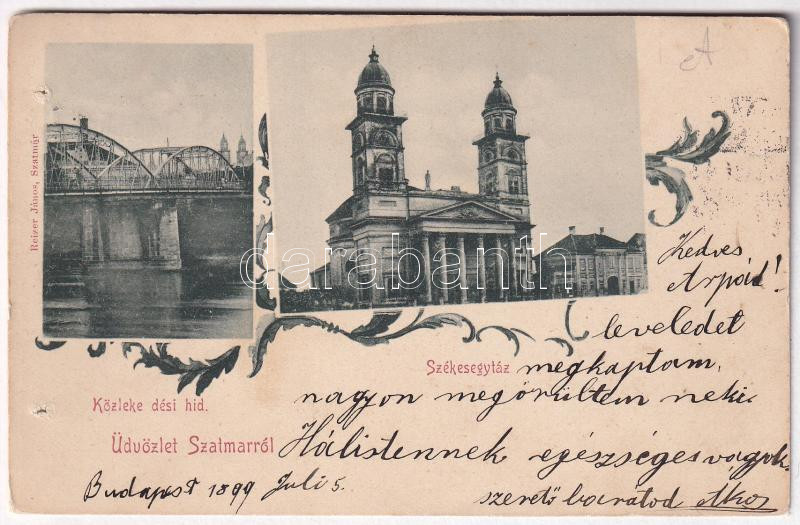 Reizer János, Szatmár
darabanth
Kedves
Árpád!
leveledet
Székesegytáz
megkaptam,
nagyon megörültem neki.
Közleke dési hid.
Üdvözlet Szatmarról
Hálistennek egészséges vagyok.
Budapest 1899 Juli 5.
szerető barátod Ákos